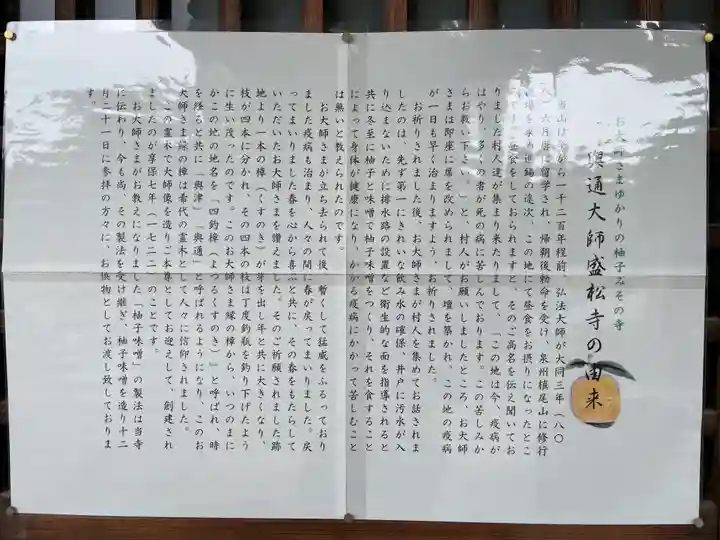 お大師さまゆかりの柚子みその寺
興通大師盛松寺の由来
当山は今から一千二百年程前、弘法大師が大同三年（八〇
八）六月唐に留学され、帰朝後勅命を受け、泉州槙尾山に修行
場を求め巡錫の途次、この地にて昼食をお摂りになったとこ
ろです。昼食をしておられますと、そのご高名を伝え聞いてお
りました村人達が集まり来たりまして、「この地は今、疫病が
はやり、多くの者が死の病に苦しんでおります。この苦しみか
らお救い下さい。」と、村人がお願いしましたところ、お大師
さまは即座に席を改められまして、壇を築かれ、この地の疫病
が一日も早く治まりますよう、お祈りされました。
お祈りされました後、お大師さまが村人を集めてお話されま
したのは、先ず第一にきれいな飲み水の確保、井戸に汚水が入
り込まないために排水路の設置など衛生的な面を指導されると
共に冬至に柚子と味噌で柚子味噌をつくり、それを食すること
によって身体が健康になり、かかる疫病にかかって苦しむこと
は無いと教えられたのです。
お大師さまが立ち去られて後、暫くして猛威をふるっており
ました疫病も治まり、人々の間に春が戻ってまいりました。戻
ってまいりました春を心から喜ぶと共に、その春をもたらして
いただいたお大師さまを讃えました。そのご祈願されました跡
地より一本の樟（くすのき）が芽を出し年と共に大きくなり、
枝が四本に分かれ、その四本の枝は丁度釣瓶を釣り下げたよう
に生い茂ったのです。このお大師さま縁の樟から、いつのまに
かこの地の地名を「四釣樟（よつるくすのき）」と呼ばれ、時
を経ると共に「奥津」「興通」と呼ばれるようになり、このお
大師さま縁の樟は希代の霊木として人々に信仰されました。
この霊木で大師像を造りご本尊としてお迎えして、創建され
ましたのが享保七年（一七二二）のことです。
お大師さまがお教えになりました「柚子味噌」の製法は当寺
に伝わり、今も尚、その製法を受け継ぎ、柚子味噌を造り十二
月二十一日に参拝の方々に、お供物としてお渡し致しておりま
す。